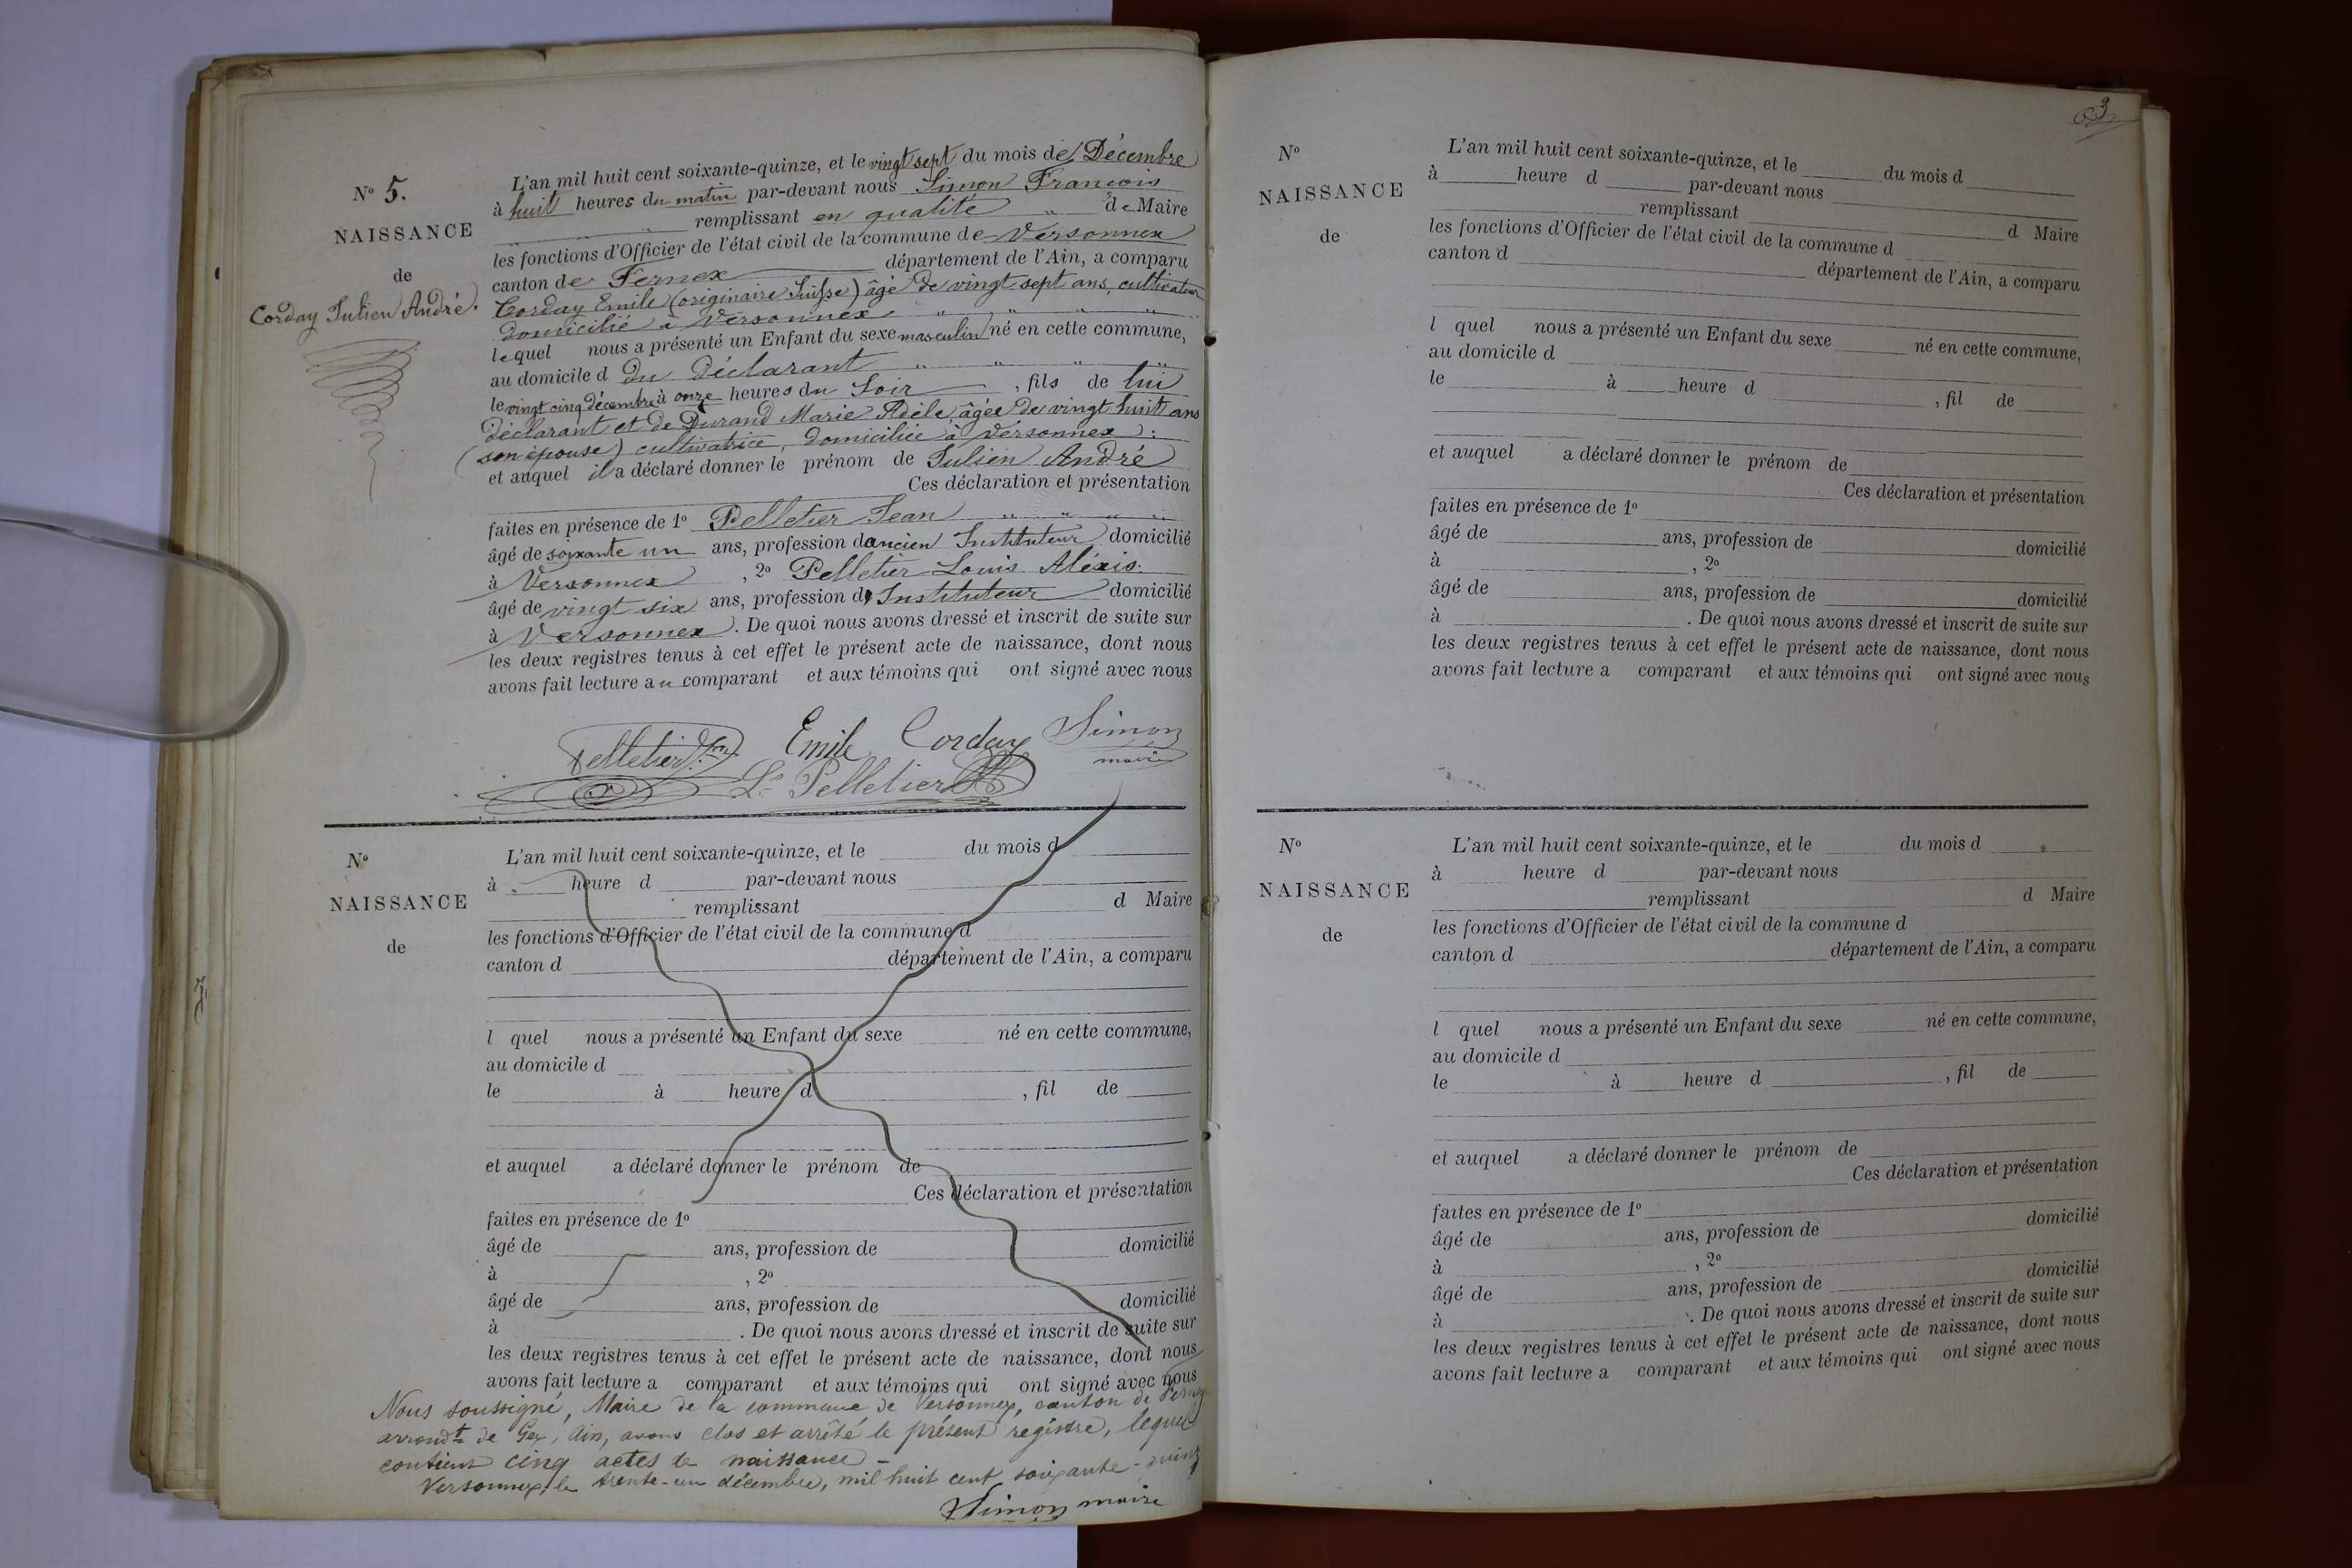 N° 5.
NAISSANCE
de
Corday Julien André.
L'an mil huit cent soixante-quinze, et le vingt sept du mois de Décembre
à huit heures du matin par-devant nous Simon François
remplissant en qualité de Maire
les fonctions d'Officier de l'état civil de la commune de Versonnex
canton de Fernex département de l'Ain, a comparu
Corday Emile (originaire Suisse) âgé de vingt sept ans, cultivateur
domicilié à Versonnex
lequel nous a présenté un Enfant du sexe masculin né en cette commune,
au domicile d du déclarant
le vingt cinq décembre à onze heures du Soir , fils de lui
déclarant et de Durand Marie Adèle, âgée de vingt huit ans
(son épouse) cultivatrice, domiciliée à Versonnex :
et auquel il a déclaré donner le prénom de Julien André
Ces déclaration et présentation
faites en présence de 1° Pelletier Jean
âgé de soixante un ans, profession d'ancien Instituteur domicilié
à Versonnex , 2° Pelletier Louis Aléxis.
âgé de vingt six ans, profession d' Instituteur domicilié
à Versonnex . De quoi nous avons dressé et inscrit de suite sur
les deux registres tenus à cet effet le présent acte de naissance, dont nous
avons fait lecture au comparant et aux témoins qui ont signé avec nous
Pelletier Jn Emile Corday Simon
maire
Ls Pelletier
N°
NAISSANCE
de
L'an mil huit cent soixante-quinze, et le du mois d
à heure d par-devant nous
remplissant d Maire
les fonctions d'Officier de l'état civil de la commune d
canton d département de l'Ain, a comparu
l quel nous a présenté un Enfant du sexe né en cette commune,
au domicile d
le à heure d , fil de
et auquel a déclaré donner le prénom de
Ces déclaration et présentation
faites en présence de 1°
âgé de ans, profession de domicilié
à , 2°
âgé de ans, profession de domicilié
à . De quoi nous avons dressé et inscrit de suite sur
les deux registres tenus à cet effet le présent acte de naissance, dont nous
avons fait lecture a comparant et aux témoins qui ont signé avec nous
Nous soussigné, Maire de la commune de Versonnex, canton de Ferney
arrondt de Gex, Ain, avons clos et arrêté le présent régistre, lequel
contient cinq actes de naissance -
Versonnex, le trente-un décembre, mil huit cent soixante-quinz
Simon maire
3
N°
NAISSANCE
de
L'an mil huit cent soixante-quinze, et le du mois d
à heure d par-devant nous
remplissant d Maire
les fonctions d'Officier de l'état civil de la commune d
canton d département de l'Ain, a comparu
l quel nous a présenté un Enfant du sexe né en cette commune,
au domicile d
le à heure d , fil de
et auquel a déclaré donner le prénom de
Ces déclaration et présentation
faites en présence de 1°
âgé de ans, profession de domicilié
à , 2°
âgé de ans, profession de domicilié
à . De quoi nous avons dressé et inscrit de suite sur
les deux registres tenus à cet effet le présent acte de naissance, dont nous
avons fait lecture a comparant et aux témoins qui ont signé avec nous
N°
NAISSANCE
de
L'an mil huit cent soixante-quinze, et le du mois d
à heure d par-devant nous
remplissant d Maire
les fonctions d'Officier de l'état civil de la commune d
canton d département de l'Ain, a comparu
l quel nous a présenté un Enfant du sexe né en cette commune,
au domicile d
le à heure d , fil de
et auquel a déclaré donner le prénom de
Ces déclaration et présentation
faites en présence de 1°
âgé de ans, profession de domicilié
à , 2°
âgé de ans, profession de domicilié
à . De quoi nous avons dressé et inscrit de suite sur
les deux registres tenus à cet effet le présent acte de naissance, dont nous
avons fait lecture a comparant et aux témoins qui ont signé avec nous